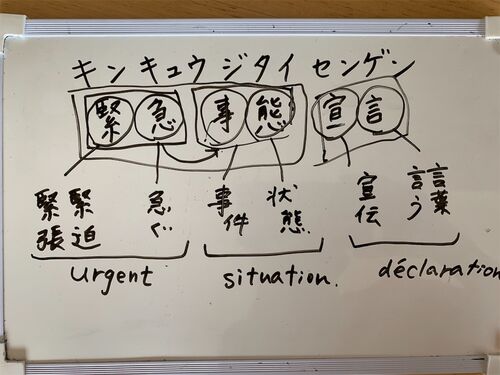 キンキュウジタイセンゲン
緊急事態宣言
緊張 緊迫 急ぐ 事件 状態 宣伝 言う 言葉
urgent situation. déclaration